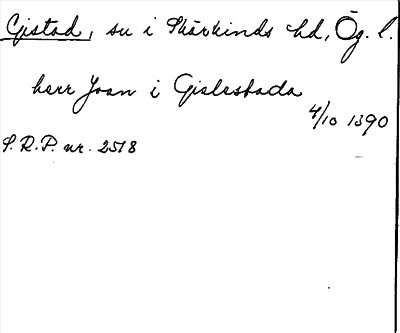 Gistad, sn i Skärkinds hd, Ög. l.
herr Joan i Gislastada
4/10 1390
S.R.P. nr. 2518